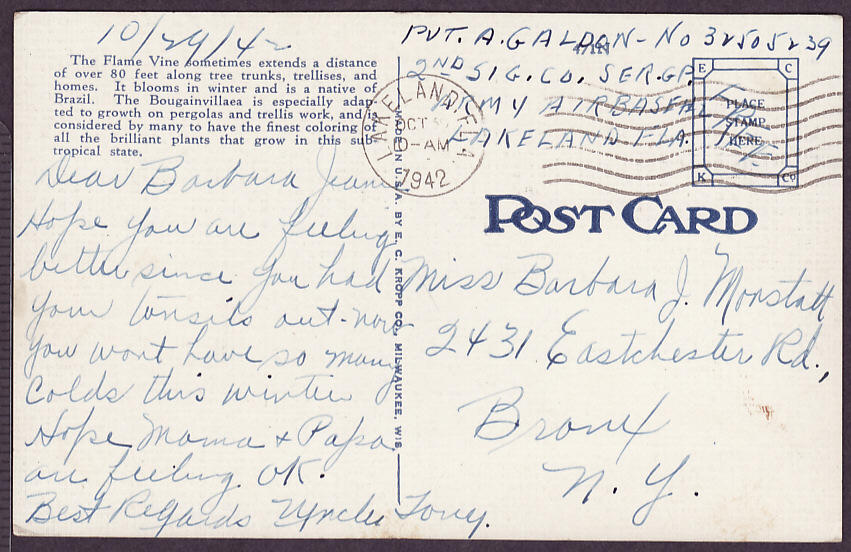 10/29/42
The Flame Vine sometimes extends a distance
of over 80 feet along tree trunks, trellises, and
homes. It blooms in winter and is a native of
Brazil. The Bougainvillaea is especially adap-
ted to growth on pergolas and trellis work, and is
considered by many to have the finest coloring of
all the brilliant plants that grow in this sub-
tropical state.
Dear Barbara Jean
Hope you are feeling
better since you had
your tonsils out - now
you wont have so many
colds this winter
Hope Mama & Papa
are feeling OK.
Best Regards Uncle Tony.
MADE IN U.S.A. BY E. C. KROPP CO., MILWAUKEE, WIS.
PVT. A. GALDON - NO 32505239
2ND SIG. CO. SER. GP.
ARMY AIRBASE
LAKELAND FLA.
47IN
LAKELAND, FLA
OCT
-AM
1942
E C
PLACE
STAMP
HERE
K Co
POST CARD
Miss Barbara J. Monstatt
2431 Eastchester Rd.,
Bronx
N. Y.